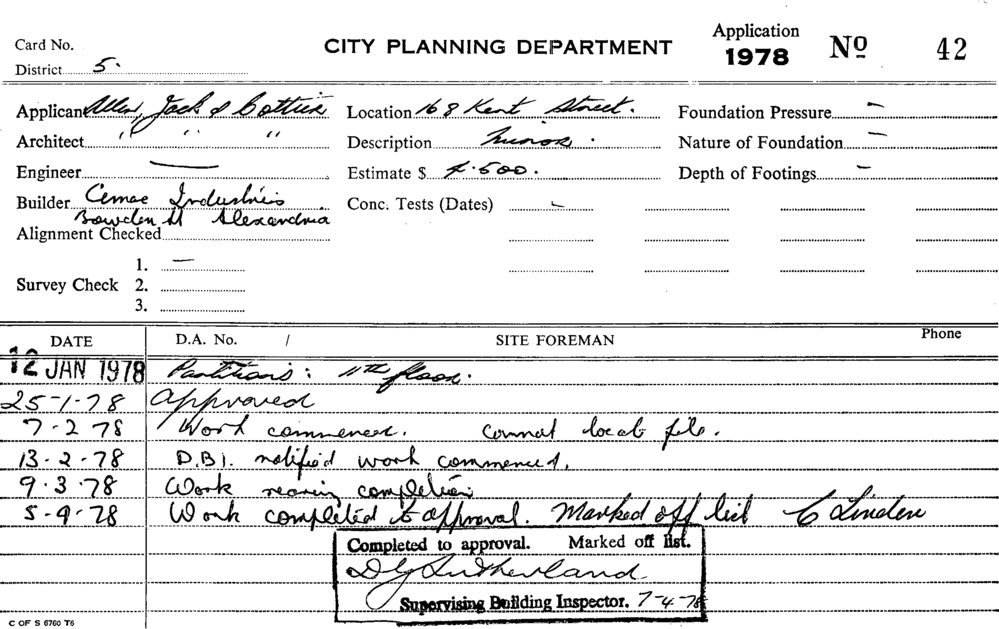 Card No. CITY PLANNING DEPARTMENT Application 1978 Nº 42
District 5.
Applicant Allen, Jack & Cottier Location 168 Kent Street. Foundation Pressure —
Architect " " " Description Minor. Nature of Foundation —
Engineer — Estimate $ £.500. Depth of Footings —
Builder Cemac Industries Conc. Tests (Dates) —
Bowden St Alexandria
Alignment Checked
1. —
Survey Check 2.
3.
DATE D.A. No. / SITE FOREMAN Phone
12 JAN 1978 Partitions: 11th floor.
25-1-78 Approved
7-2 78 Work commenced. Cannot locate file.
13-2-78 D.B.I. notified work commenced.
9.3.78 Work nearing completion
5-9-78 Work completed to approval. Marked off list C Linden
Completed to approval. Marked off list.
D G Sutherland
Supervising Building Inspector. 7-4-78
C OF S 6760 T6